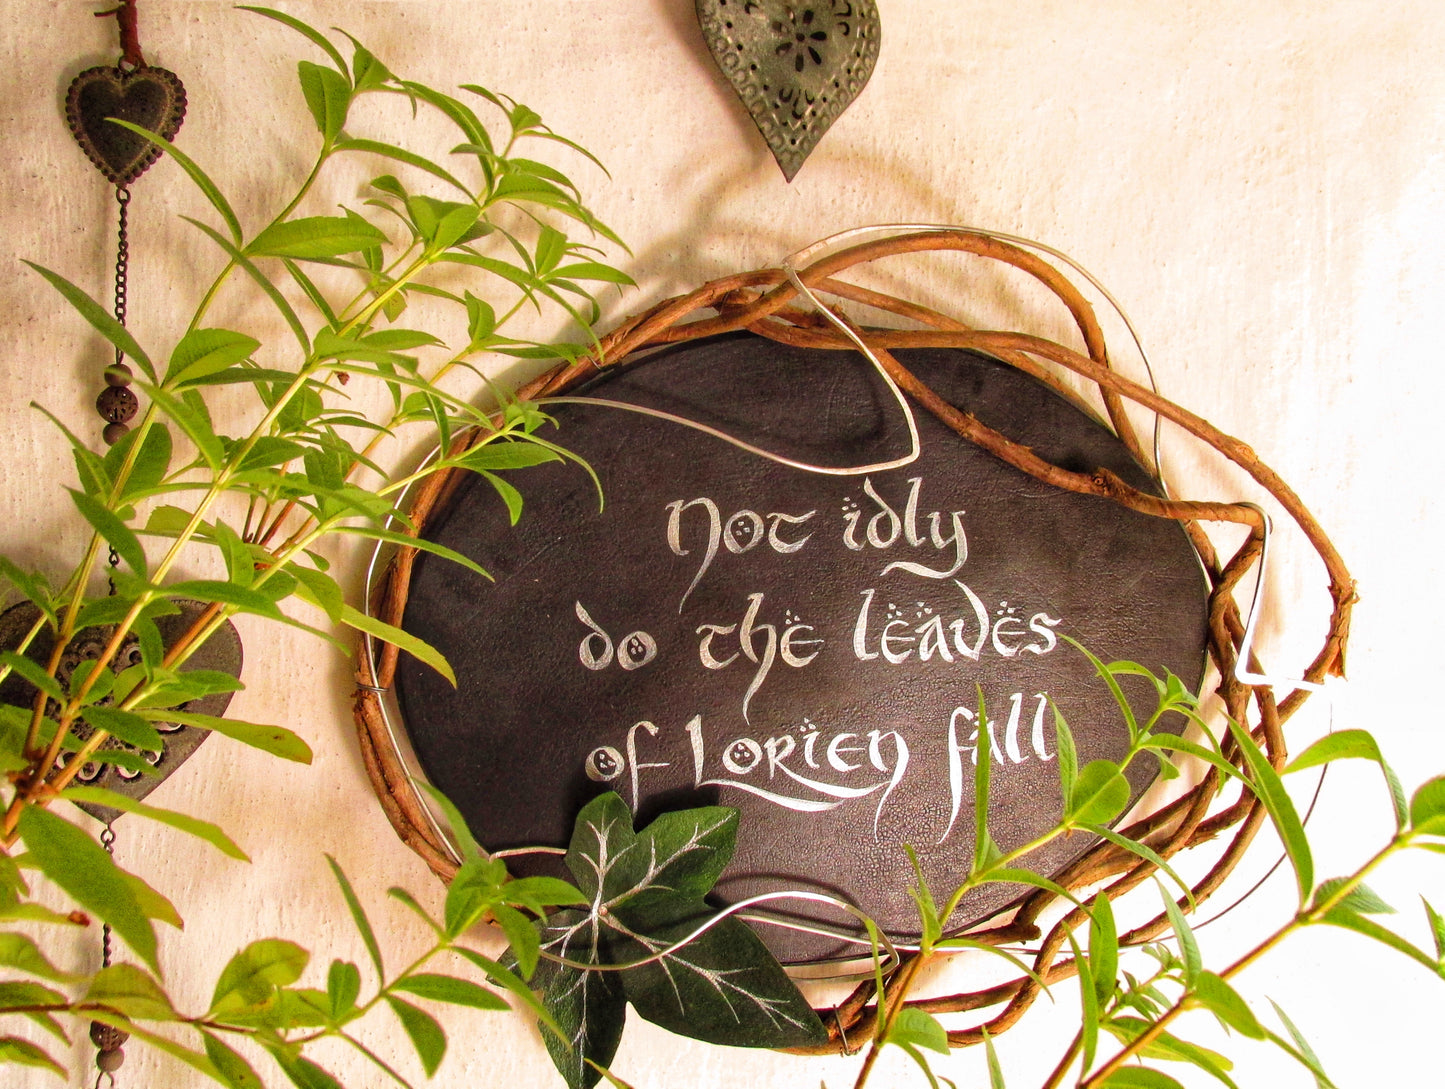 Not idly
do the leaves
of Lorien fall